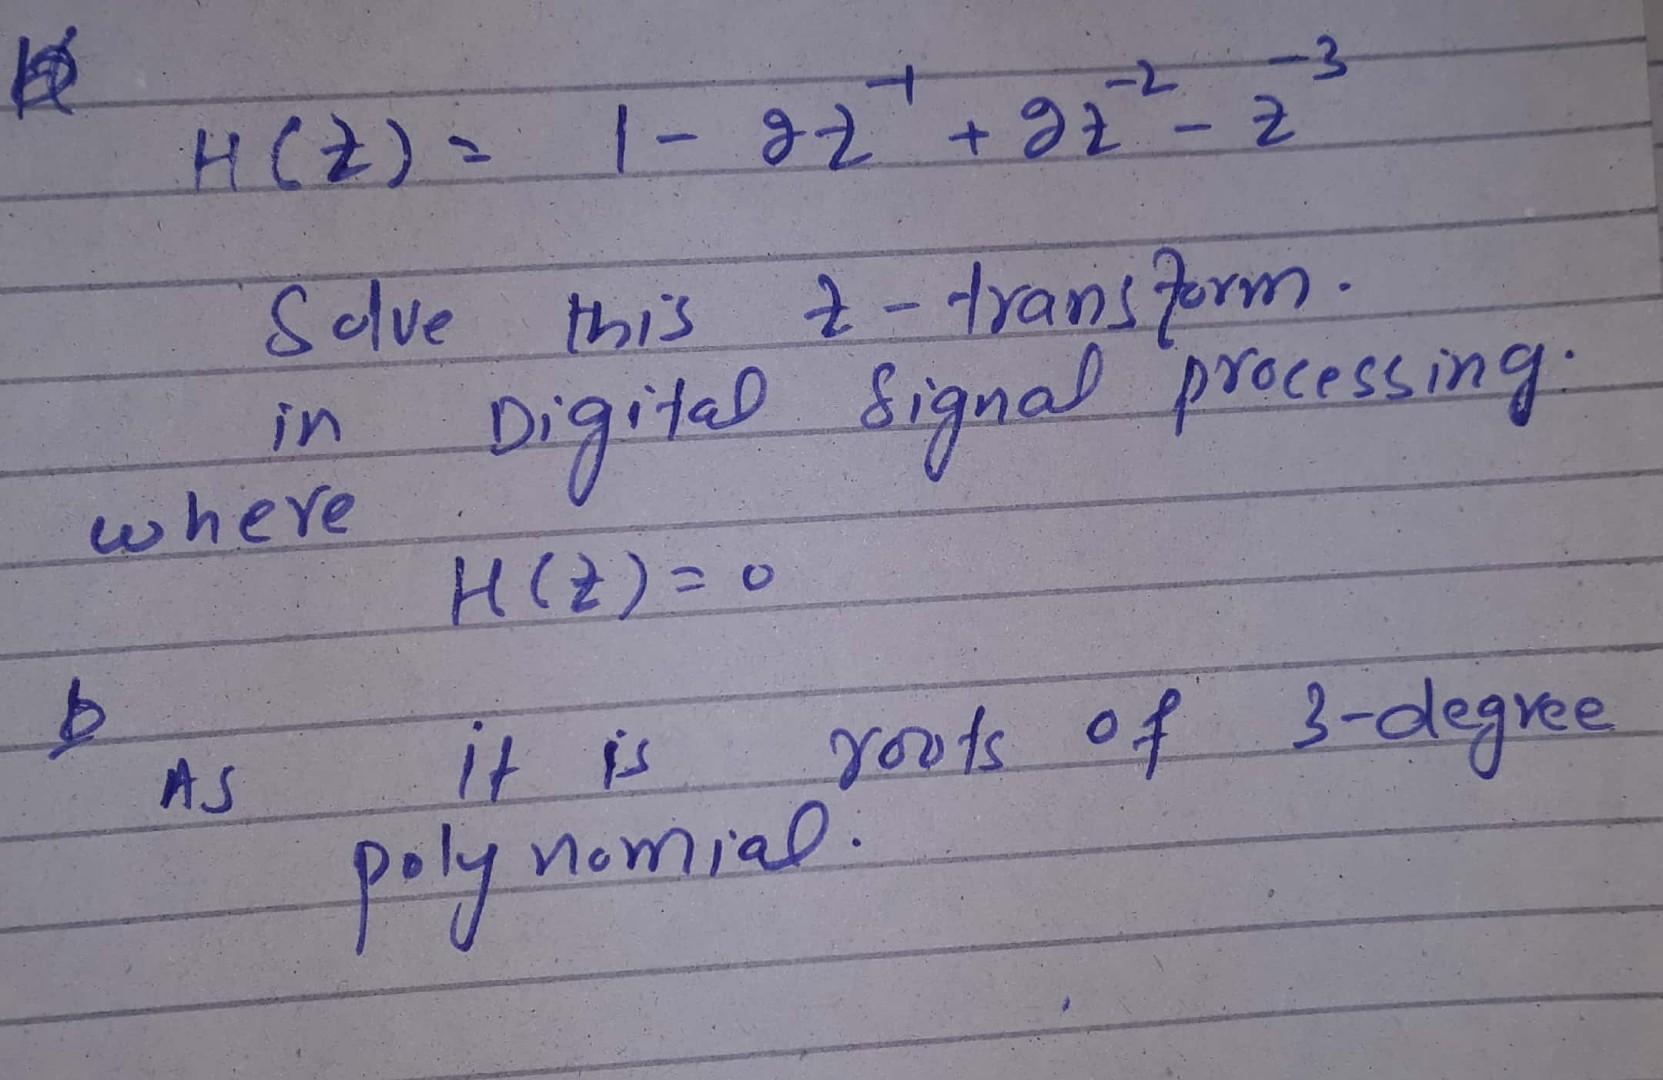 H(z) = 1 - 2z⁻¹ + 2z⁻² - z⁻³
Solve this z-transform.
in Digital Signal processing.
where
H(z) = 0
b
As it is roots of 3-degree
polynomial.